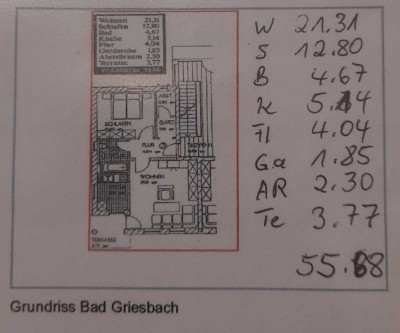 Wohnen 21,31
Schlafen 12,80
Bad 4,67
Küche 5,14
Flur 4,04
Garderobe 1,85
Abstellraum 2,30
Terrasse 3,77
ABST.
GARD.
SCHLAFEN
FLUR
WOHNEN
TERRASSE
W 21.31
S 12.80
B 4.67
K 5.14
Fl 4.04
Ga 1.85
AR 2.30
Te 3.77
55.88
Grundriss Bad Griesbach